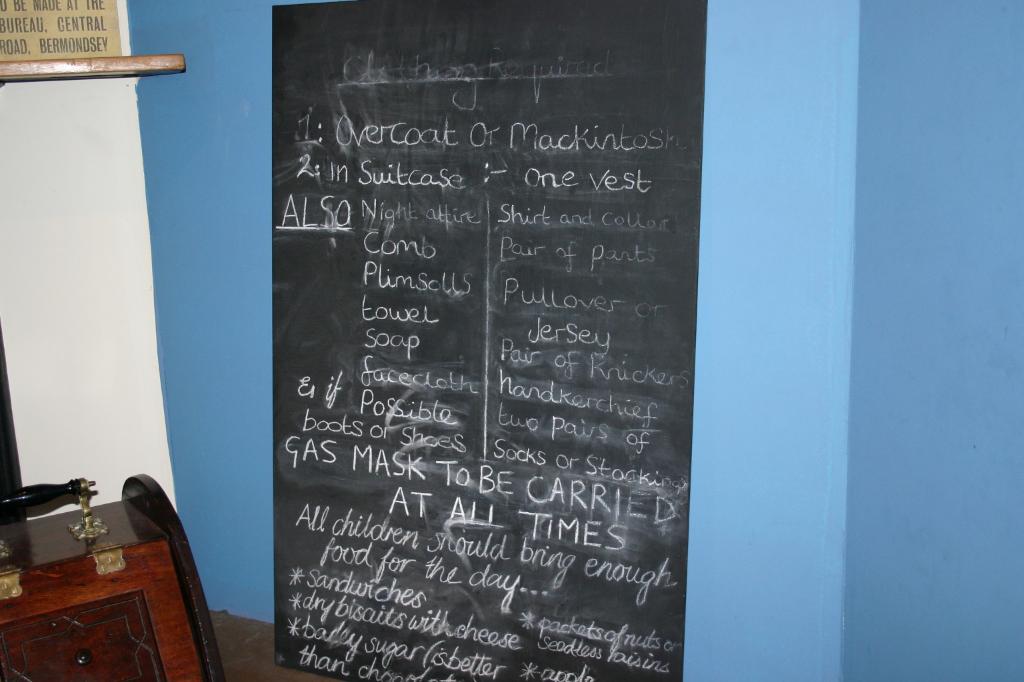 O BE MADE AT THE
BUREAU, CENTRAL
ROAD, BERMONDSEY
Clothing Required
1: Overcoat Or Mackintosh
2: In Suitcase :- One Vest
ALSO
Night attire
Comb
Plimsolls
towel
Soap
facecloth
& if Possible
boots or shoes
Shirt and collar
Pair of pants
Pullover or
Jersey
Pair of Knickers
handkerchief
two Pairs of
Socks or Stockings
GAS MASK TO BE CARRIED
AT ALL TIMES
All children should bring enough
food for the day...
*sandwiches
*dry biscuits with cheese
*barley sugar (is better
than chocolate
*packets of nuts or
seedless raisins
*apple